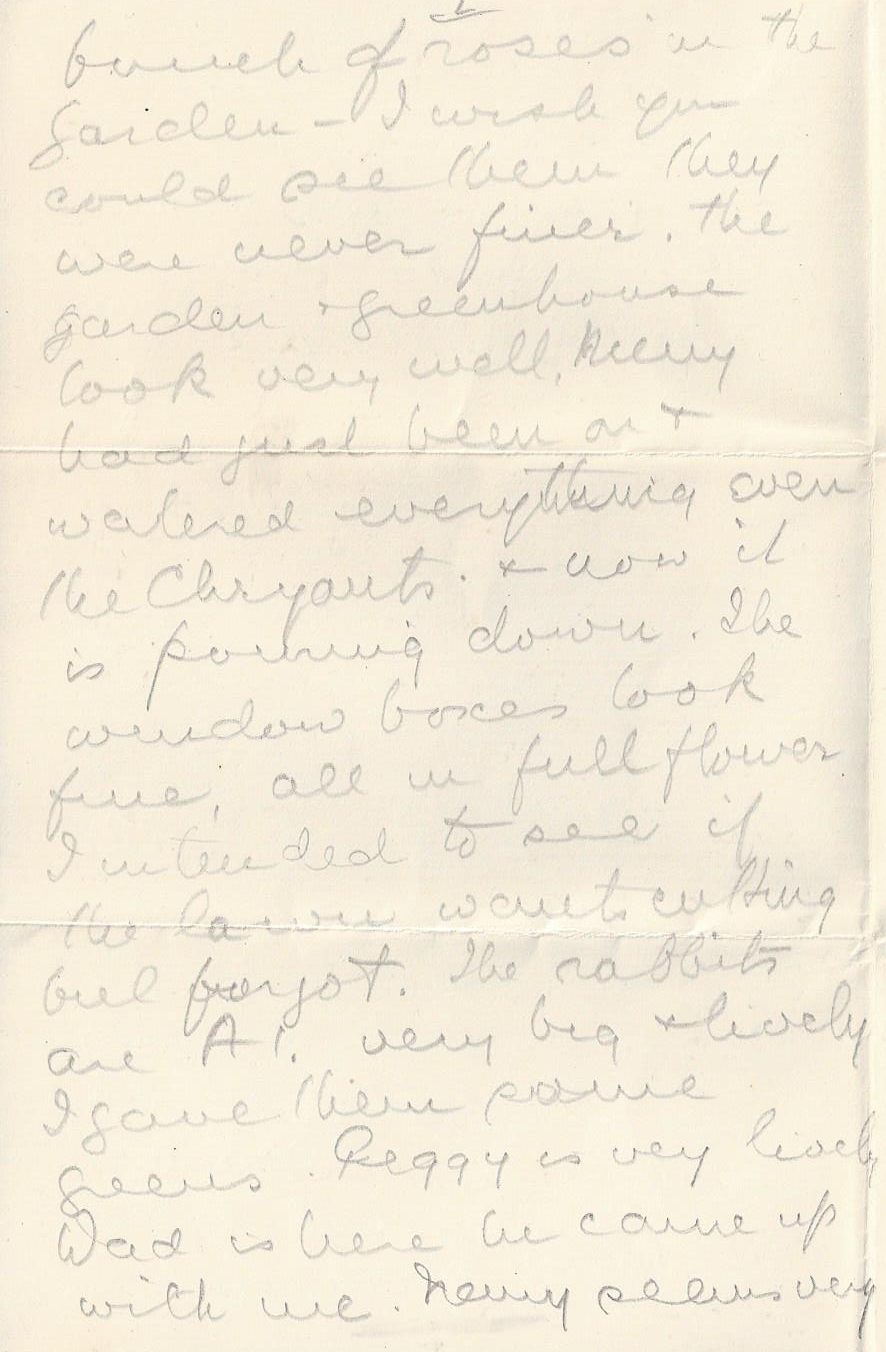 bunch of roses in the
garden - I wish you
could see them they
were never finer. The
garden + greenhouse
look very well, Henry
had just been in +
watered everything even
the Chrysants. + now it
is pouring down. The
window boxes look
fine, all in full flower
I intended to see if
the lawn wants cutting
but forgot. The rabbits
are A1. very big + lively
I gave them some
greens. Peggy is very lively
Dad is here he came up
with me. Henry seems very